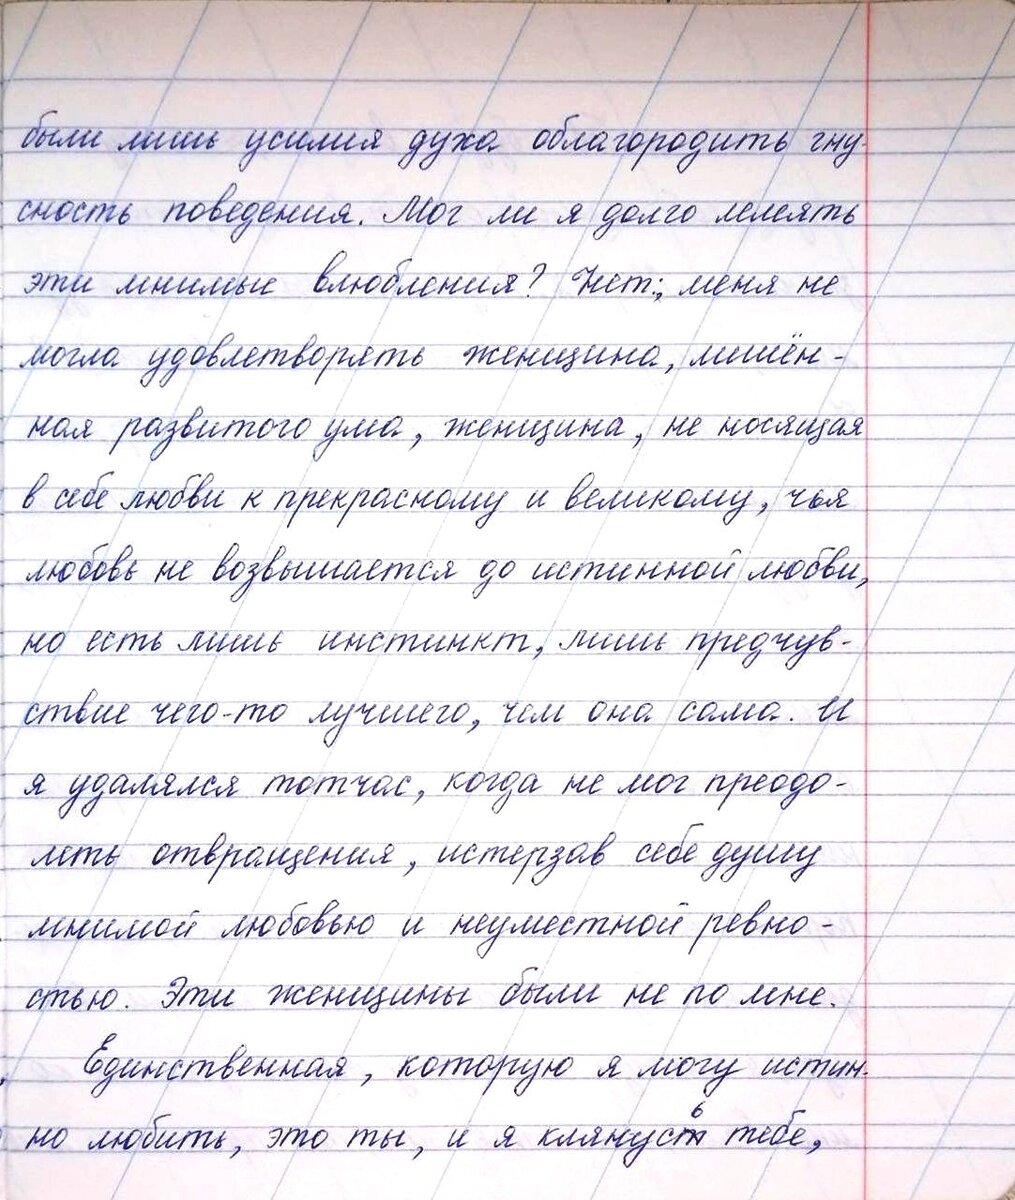 были лишь усилия духа облагородить гну-
сность поведения. Мог ли я долго лелеять
эти мнимые влюбления? Нет; меня не
могла удовлетворять женщина, лишён-
ная развитого ума, женщина, не носящая
в себе любви к прекрасному и великому, чья
любовь не возвышается до истинной любви,
но есть лишь инстинкт, лишь предчув-
ствие чего-то лучшего, чем она сама. И
я удалялся тотчас, когда не мог преодо-
леть отвращения, истерзав себе душу
мнимой любовью и неуместной ревно-
стью. Эти женщины были не по мне.
Единственная, которую я могу истин-
но любить, это ты, и я клянусь тебе,